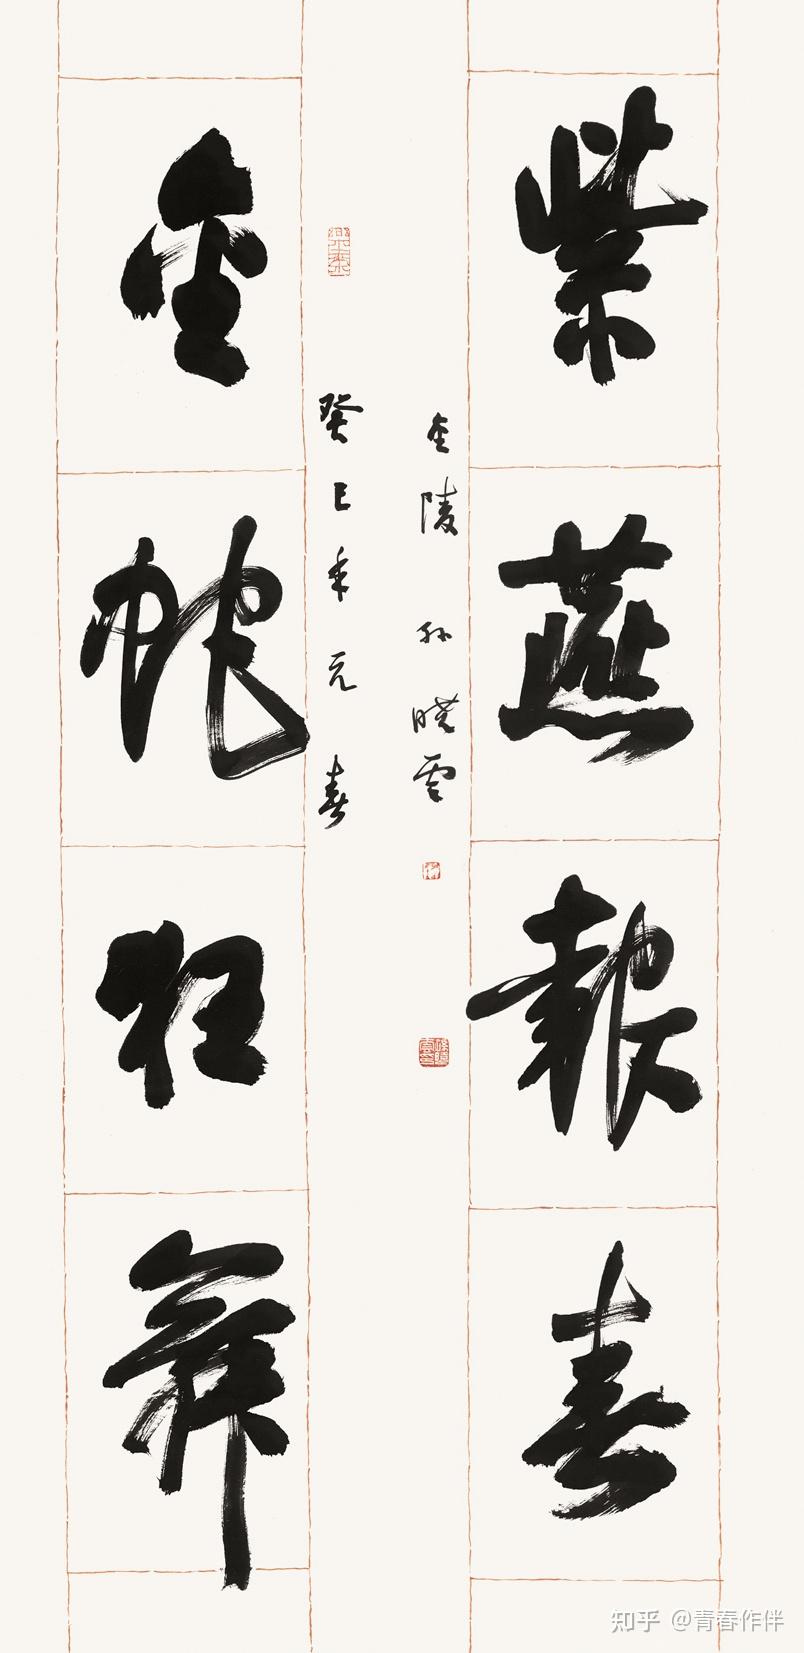 紫燕報春
金陵孙晓雲
癸巳年元春
金蛇狂舞
知乎 @青春作伴